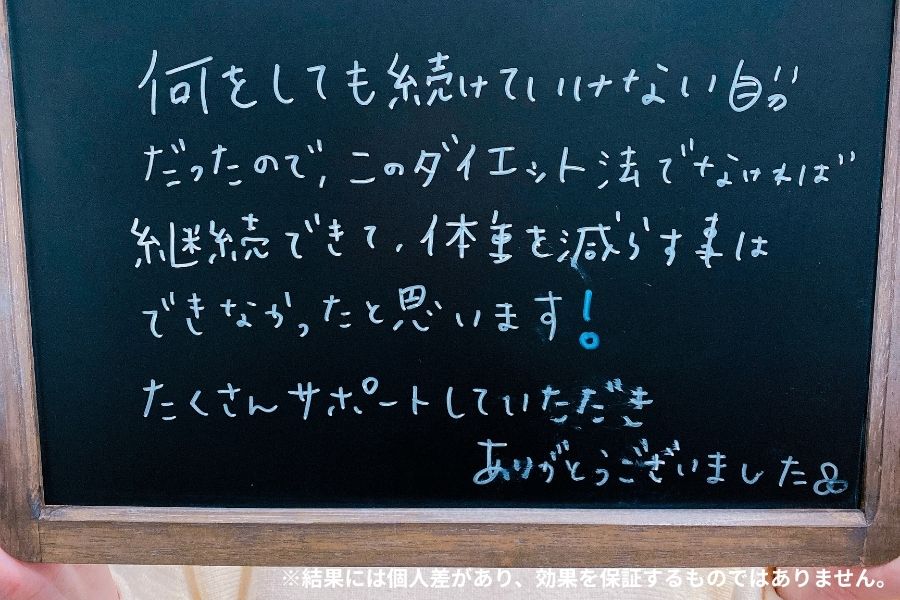 何をしても続けていけない自分
だったので、このダイエット法でなければ
継続できて、体重を減らす事は
できなかったと思います!
たくさんサポートしていただき
ありがとうございました
※結果には個人差があり、効果を保証するものではありません。